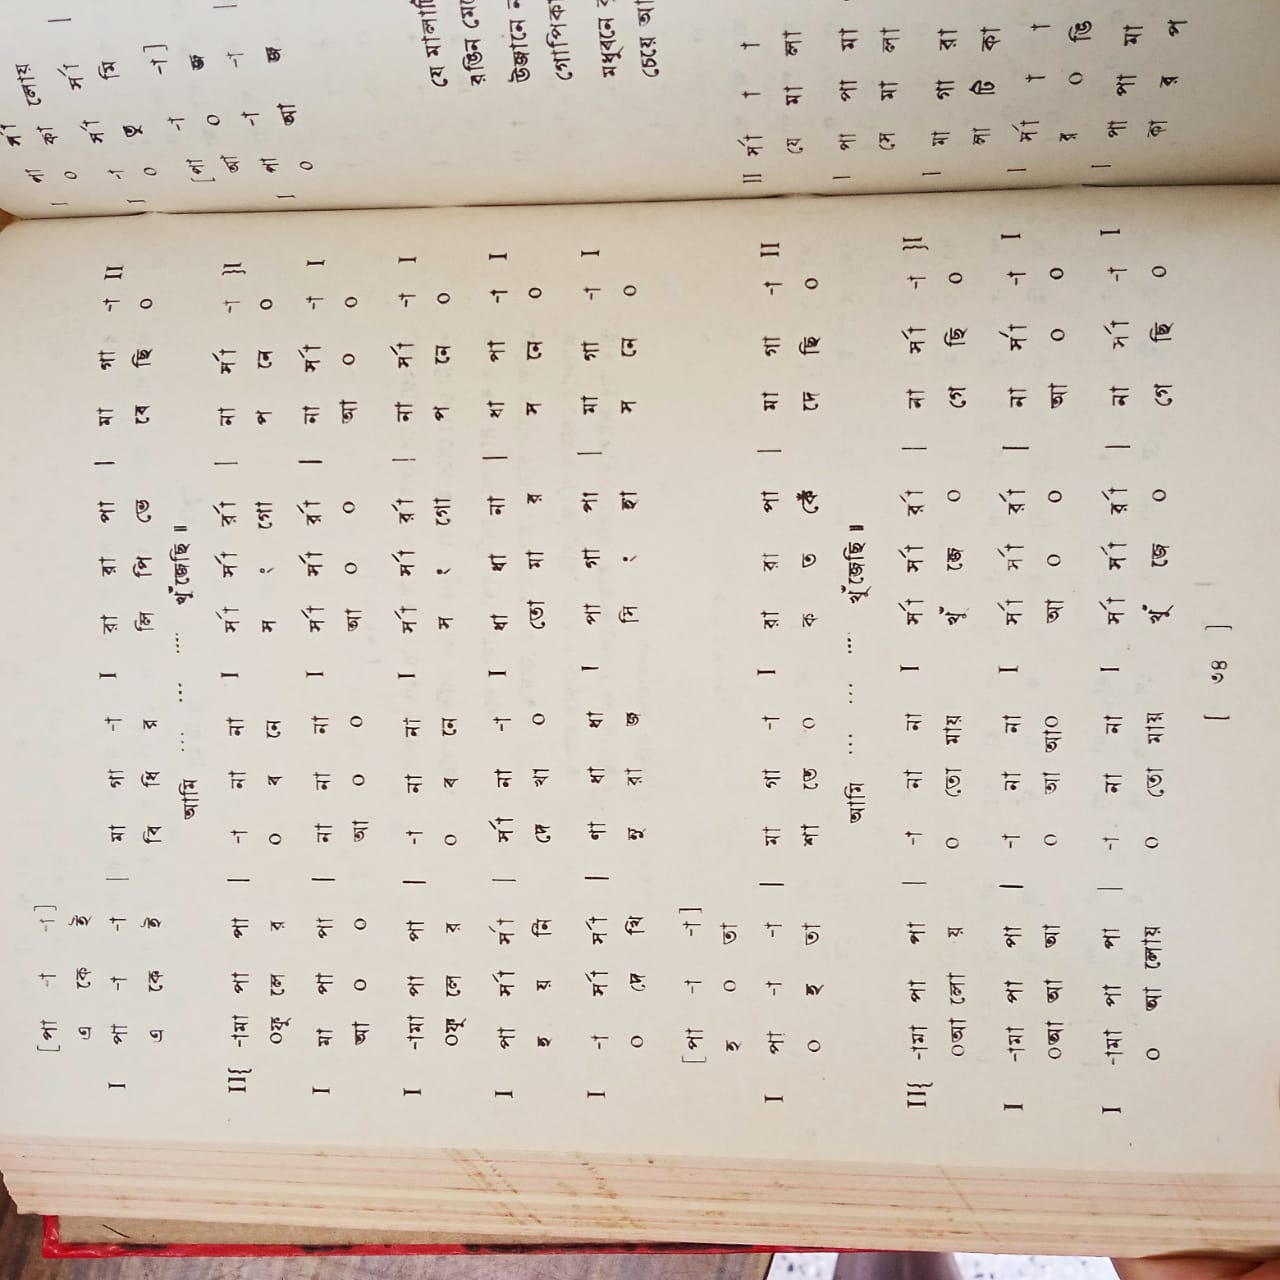 [পা -া -া]
এ কে ই
I পা -া -া | মা গা -া I রা রা পা | মা গা -া II
এ কে ই বি ধি র লি পি তে বে ছি ০
আমি ... ... .... খুঁজেছি॥
II{ -ামা পা পা | -া না না I র্সা র্সা র্রা | না র্সা -া }I
০ফু লে র ০ ব নে স ং গো প নে ০
I মা পা পা | না না না I র্সা র্সা র্রা | না র্সা -া I
আ ০ ০ আ ০ ০ আ ০ ০ আ ০ ০
I -ামা পা পা | -া না না I র্সা র্সা র্রা | না র্সা -া I
০ফু লে র ০ ব নে স ং গো প নে ০
I পা র্সা র্সা | র্সা না -া I ধা ধা না | ধা পা -া I
হ য় নি দে খা ০ তো মা র স নে ০
I -া র্সা র্সা | ণা ধা ধা I পা গা পা | মা গা -া I
০ দে খি মু রা জ সি ং হা স নে ০
[পা -া -া]
হ ০ তা
I পা -া -া | মা গা -া I রা রা পা | মা গা -া II
০ হ তা শা তে ০ ক ত কেঁ দে ছি ০
আমি ... ... .... খুঁজেছি॥
II{ -ামা পা পা | -া না না I র্সা র্সা র্রা | না র্সা -া }I
০আ লো য় ০ তো মায় খুঁ জে ০ গে ছি ০
I -ামা পা পা | -া না না I র্সা র্সা র্রা | না র্সা -া I
০আ আ আ ০ আ আ০ আ ০ ০ আ ০ ০
I -ামা পা পা | -া না না I র্সা র্সা র্রা | না র্সা -া I
০ আ লোয় ০ তো মায় খুঁ জে ০ গে ছি ০
[ ৩৪ ]
পা র্সা লোয়
০ কা র্সা |
I -া র্সা মি
০ তু -া]
[পা -া জ
আ ০ -া |
পা -া জ
I ০ আ
যে মালাটি
রঙিন মে
উজানে
গোপিকা
মধুবনে
চেয়ে আ
II র্সা া া
যে মা লা
I পা পা মা
সে মা লা
I মা গা রা
লা টি কা
I র্সা া া
র ০ ভি
I পা পা মা
কা র প